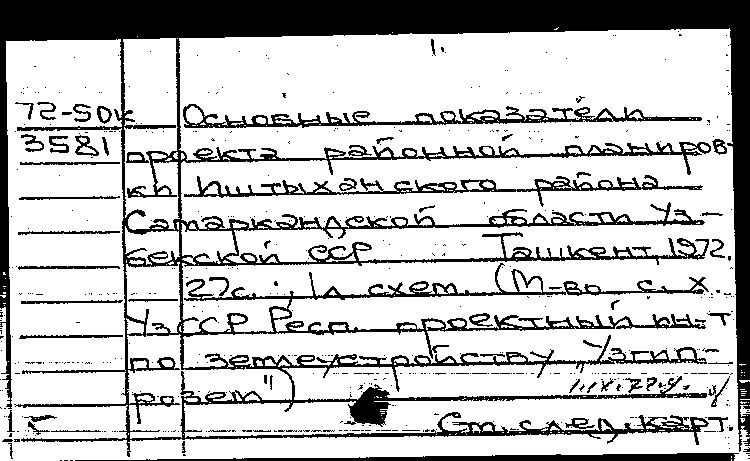 1.
72-50к Основные показатели
3581 проекта районной планиров-
ки Иштыханского района
Самаркандской области Уз-
бекской ССР Ташкент, 1972.
27с.; 1л схем. (М-во с. х.
УзССР Респ. проектный ин-т
по землеустройству "Узгип-
розем")
См. след. карт.